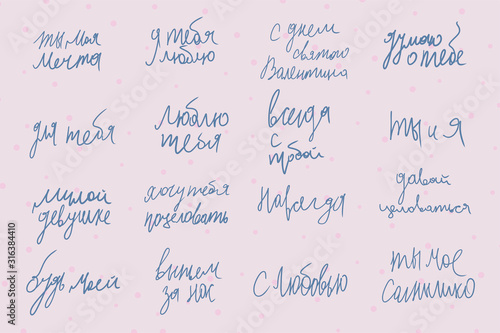 ты моя
мечта
я тебя
люблю
с днем
святого
Валентина
думаю
о тебе
для тебя
люблю
тебя
всегда
с
тобой
ты и я
милой
девушке
хочу тебя
поцеловать
навсегда
давай
целоваться
будь моей
выпьем
за нас
с любовью
ты мое
солнышко
Adobe Stock | #316384410